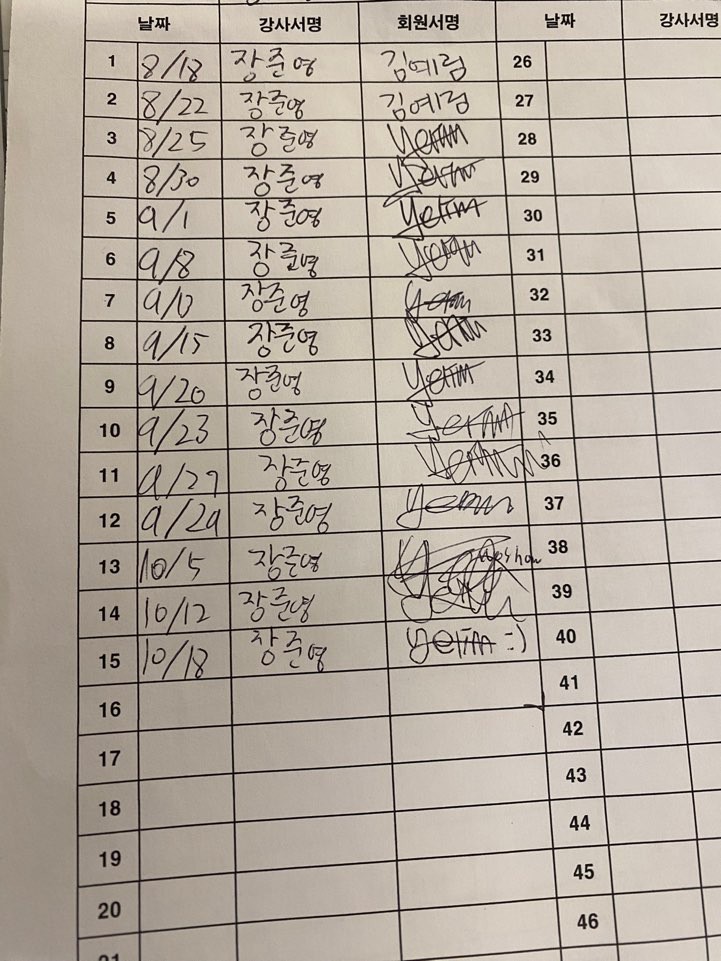 날짜 강사서명 회원서명 날짜 강사서명
1 8/18 장준영 김예림 26
2 8/22 장준영 김예림 27
3 8/25 장준영 yerim 28
4 8/30 장준영 yerim 29
5 9/1 장준영 yerim 30
6 9/8 장준영 yerim 31
7 장준영 yerim 32
8 9/15 장준영 yerim 33
9 9/20 장준영 yerim 34
10 9/23 장준영 yerim 35
11 9/27 장준영 yerim 36
12 9/29 장준영 yerim 37
13 10/5 장준영 noshow 38
14 10/12 장준영 39
15 10/18 장준영 yerim :) 40
16 41
17 42
18 43
19 44
20 45
46